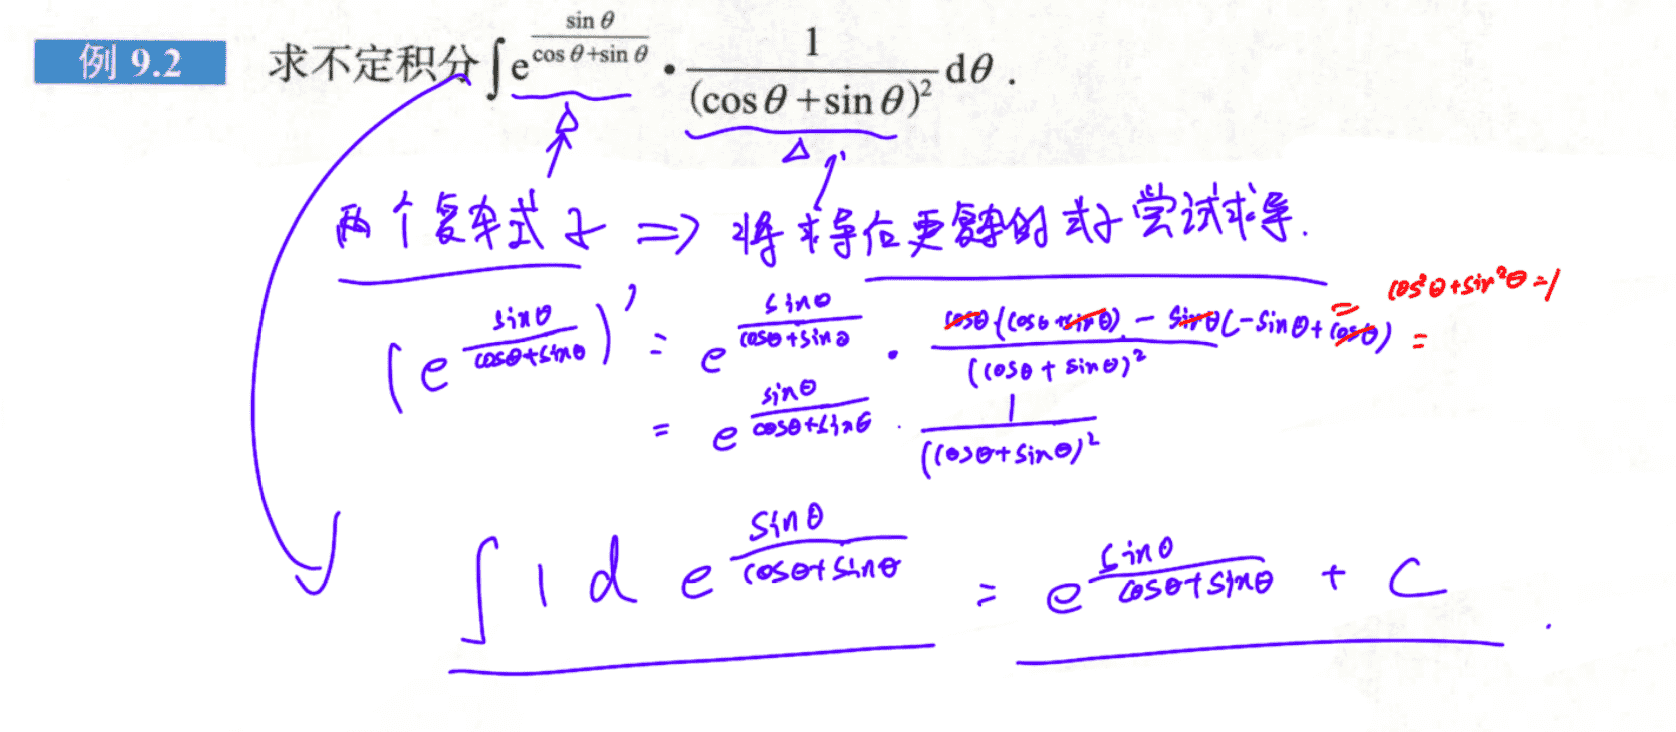 例 9.2 求不定积分 ∫ e^{\frac{sin θ}{cos θ+sin θ}} · \frac{1}{(cos θ+sin θ)^2} dθ .
△ △
两个复杂式子 => 将求导后更复杂的式子尝试求导.
cos²θ+sin²θ=1
(e^{\frac{sinθ}{cosθ+sinθ}})' = e^{\frac{sinθ}{cosθ+sinθ}} · \frac{cosθ(cosθ+sinθ) - sinθ(-sinθ+cosθ)}{(cosθ+sinθ)^2} =
= e^{\frac{sinθ}{cosθ+sinθ}} · \frac{1}{(cosθ+sinθ)^2}
∫ 1 d e^{\frac{sinθ}{cosθ+sinθ}} = e^{\frac{sinθ}{cosθ+sinθ}} + C .